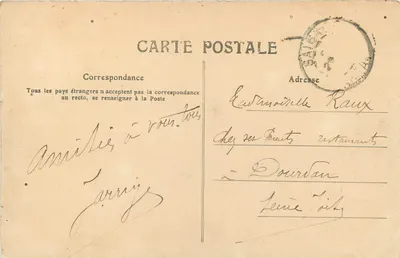 CARTE POSTALE
Correspondance
Tous les pays étrangers n'acceptent pas la correspondance
au recto, se renseigner à la Poste
Amitiés à vous tous
Adresse
Mademoiselle Raux
chez ses
à Dourdan
Seine